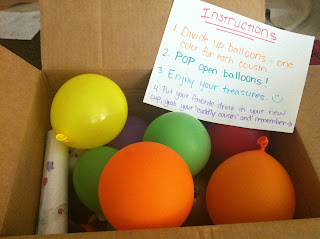 Instructions
1. Divide up balloons - one
color for each cousin.
2. POP open balloons!
3. Enjoy your treasures.
4. Put your favorite drink in your new
cup, grab your "cuddly cousin" and remember→